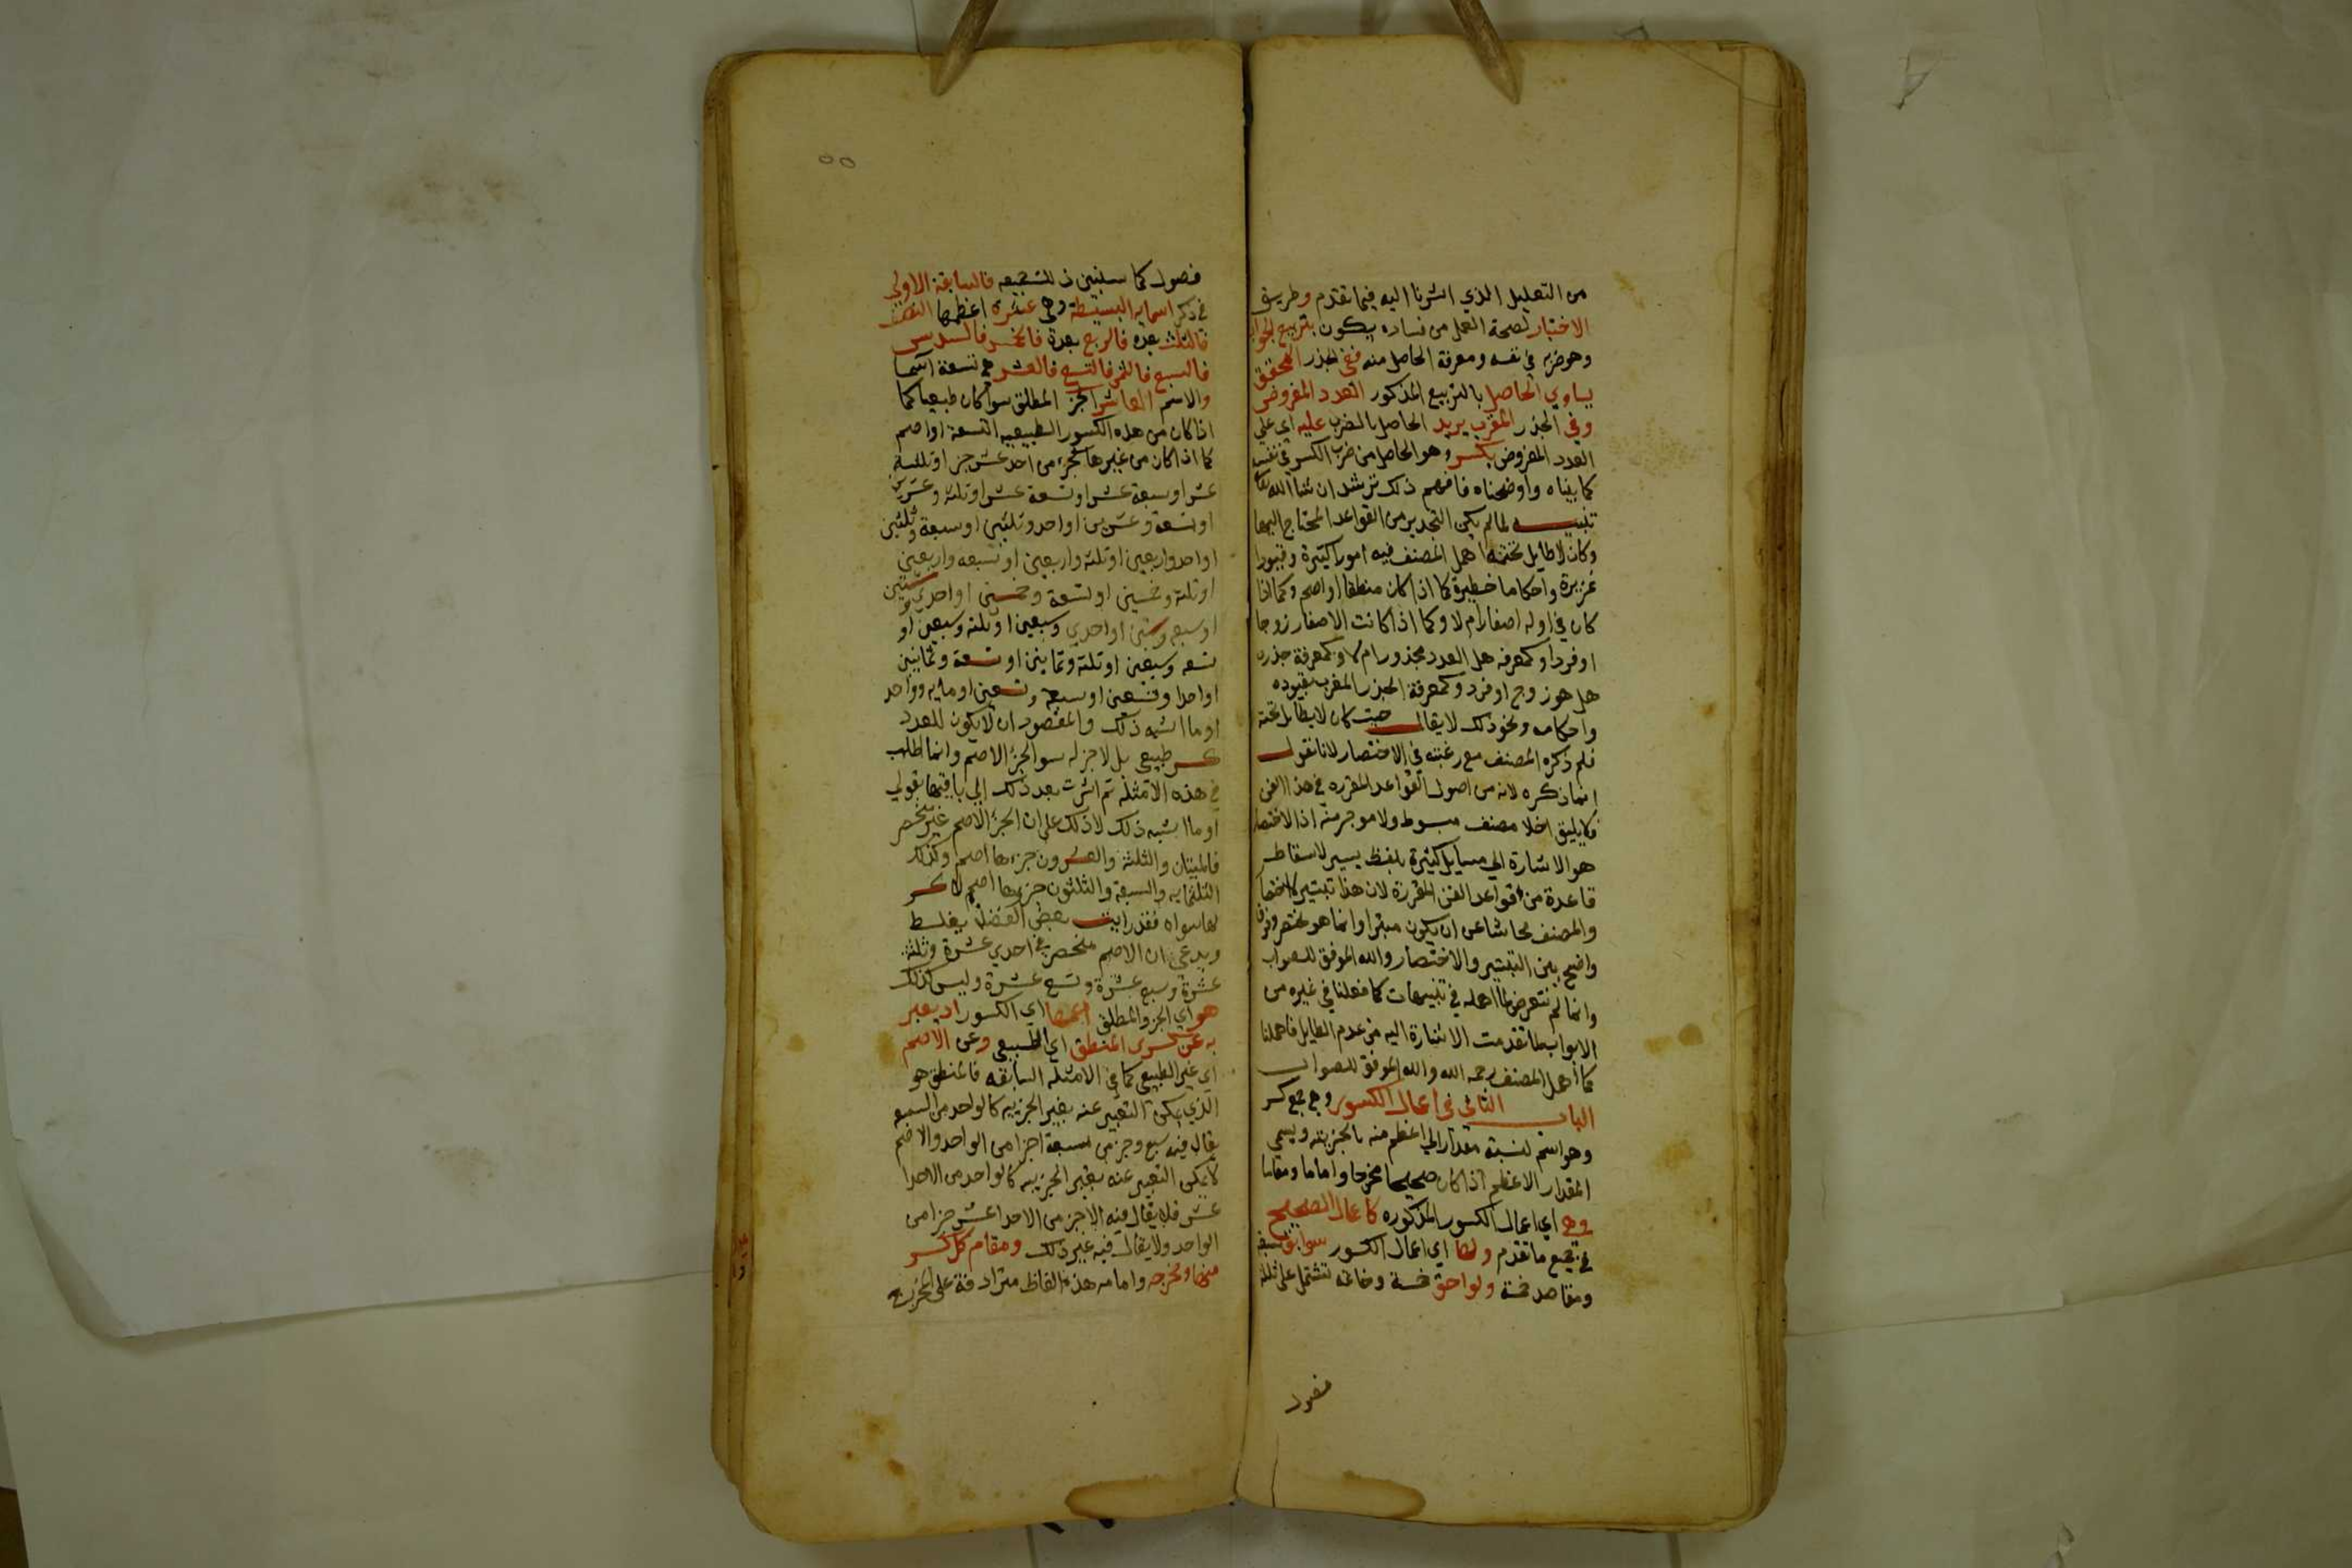 من التعليل الذي اشرنا اليه فيما تقدم وطريق
الاختبار لصحة العمل من فساده يكون بتربيع الجواب
وهو ضربه في نفسه ومعرفة الحاصل منه ففي الجذر المحقق
يساوي الحاصل بالتربيع المذكور العدد المفروض
وفي الجذر المقرب يزيد الحاصل بالضرب عليه اي على
العدد المفروض بكسر وهو الحاصل من ضرب الكسر في نفسه
كما بيناه واوضحناه فافهم ذلك ترشد ان شا الله تعا
تنبيه لما لم يكن التجذير من القواعد المحتاج اليها
وكان لا طايل تحته اهمل المصنف فيه امورا كثيرة وقيودا
غزيرة واحكاما خطيرة كما اذا كان منطقا او اصم وكما اذا
كان في اوله اصفار ام لا وكما اذا كانت الاصفار زوجا
او فردا وكمعرفة هل العدد مجذور ام لا وكمعرفة جذره
هل هو زوج او فرد وكمعرفة الجذر المقرب بقيوده
واحكامه ونحو ذلك لا يقال حيث كان لا طايل تحته
فلم ذكره المصنف مع رغبته في الاختصار لانا نقول
انما ذكره لانه من اصول القواعد المقرره في هذا الفن
فلا يليق اخلا مصنف مبسوط ولا موجز منه اذ الاختصار
هو الاشارة الي مسايل كثيرة بلفظ يسير لا اسقاط
قاعدة من قواعد الفن المقررة لان هذا تبتير لا اختصار
والمصنف تحاشا عن ان يكون مبترا وانما هو مختصر وفرق
واضح بين التبتير والاختصار والله الموفق للصواب
وانما لم نتعرض لما اهمله في تنبيهات كما فعلنا في غيره من
الابواب لما تقدمت الاشارة اليه من عدم الطايل فاهملنا
كما اهمل المصنف رحمه الله والله الموفق للصواب
الباب الثاني في اعمال الكسور وهي جمع كسر
وهو اسم لنسبة مقدار الي اعظم منه بالجزيته ويسمي
المقدار الاعظم اذا كان صحيحا مخرجا واماما ومقاما
وهي اي اعمال الكسور المذكوره كاعمال الصحيح
في جميع ما تقدم ولها اي اعمال الكسور سوابق تسعه
ومقاصد خمسة ولواحق خمسة وخاتمه تشتمل على ثلثة
فصول
فصول كما سنبين ذلك جميعه فالسابقة الاولي
في ذكر اسمايه البسيطة وهي عشرة اعظمها النصف
فالثلث بعده فالربع بعده فالخمس فالسدس
فالسبع فالثمن فالتسع فالعشر هي تسعة اسما
والاسم العاشر الجز المطلق سوا كان طبيعيا كما
اذا كان من هذه الكسور الطبيعيه التسعة او اصم
كما اذا كان من غيرها كجزء من احد عشر جزا او ثلثة
عشر او سبعة عشر او تسعة عشر او ثلثه وعشرين
او تسعة وعشرين او احد وثلثين او سبعة وثلثين
او احد واربعين او ثلثه واربعين او سبعه واربعين
او ثلثه وخمسين او تسعة وخمسين او احدي وستين
او سبعه وستين او احدي وسبعين او ثلثه وسبعين او
تسعه وسبعين او ثلثة وثمانين او تسعة وثمانين
او احدا وتسعين او سبعة وتسعين او مايه وواحد
او ما اشبه ذلك والمقصود ان لا يكون للعدد
كسر طبيعي بل لا جز له سوا الجزء الاصم وانما اطلت
في هذه الامثلة ثم اشرت بعد ذلك الي باقيها بقولي
او ما اشبه ذلك لادلك علي ان الجزء الاصم غير منحصر
فالميتان والثلثة والعشرون جزءها اصم وكذلك
الثلثمايه والسبعة والثلثون جزوها اصم لا كسر
لها سواه فقد رايت بعض الفضلا يغلط
ويدعي ان الاصم منحصر في احدي عشرة وثلثة
عشرة وسبع عشرة وتسع عشرة وليس كذلك
هو اي الجز والمطلق اعمها اي الكسور اذ يعبر
به عن الكسر المنطق اي الطبيعي وعن الاصم
اي غير الطبيعي كما في الامثلة السابقه فالمنطق هو
الذي يمكن التعبير عنه بغير الجزييه كالواحد من السبعه
يقال فيه سبع وجز من سبعة اجزا من الواحد والاصم
لا يمكن التعبير عنه بغير الجزييه كالواحد من الاحدا
عشر فلا يقال فيه الا جز من الاحدا عشر جزا من
الواحد ولا يقال فيه غير ذلك ومقام كل كسر
منها ومخرجه وامامه هذه الفاظ مترادفة على